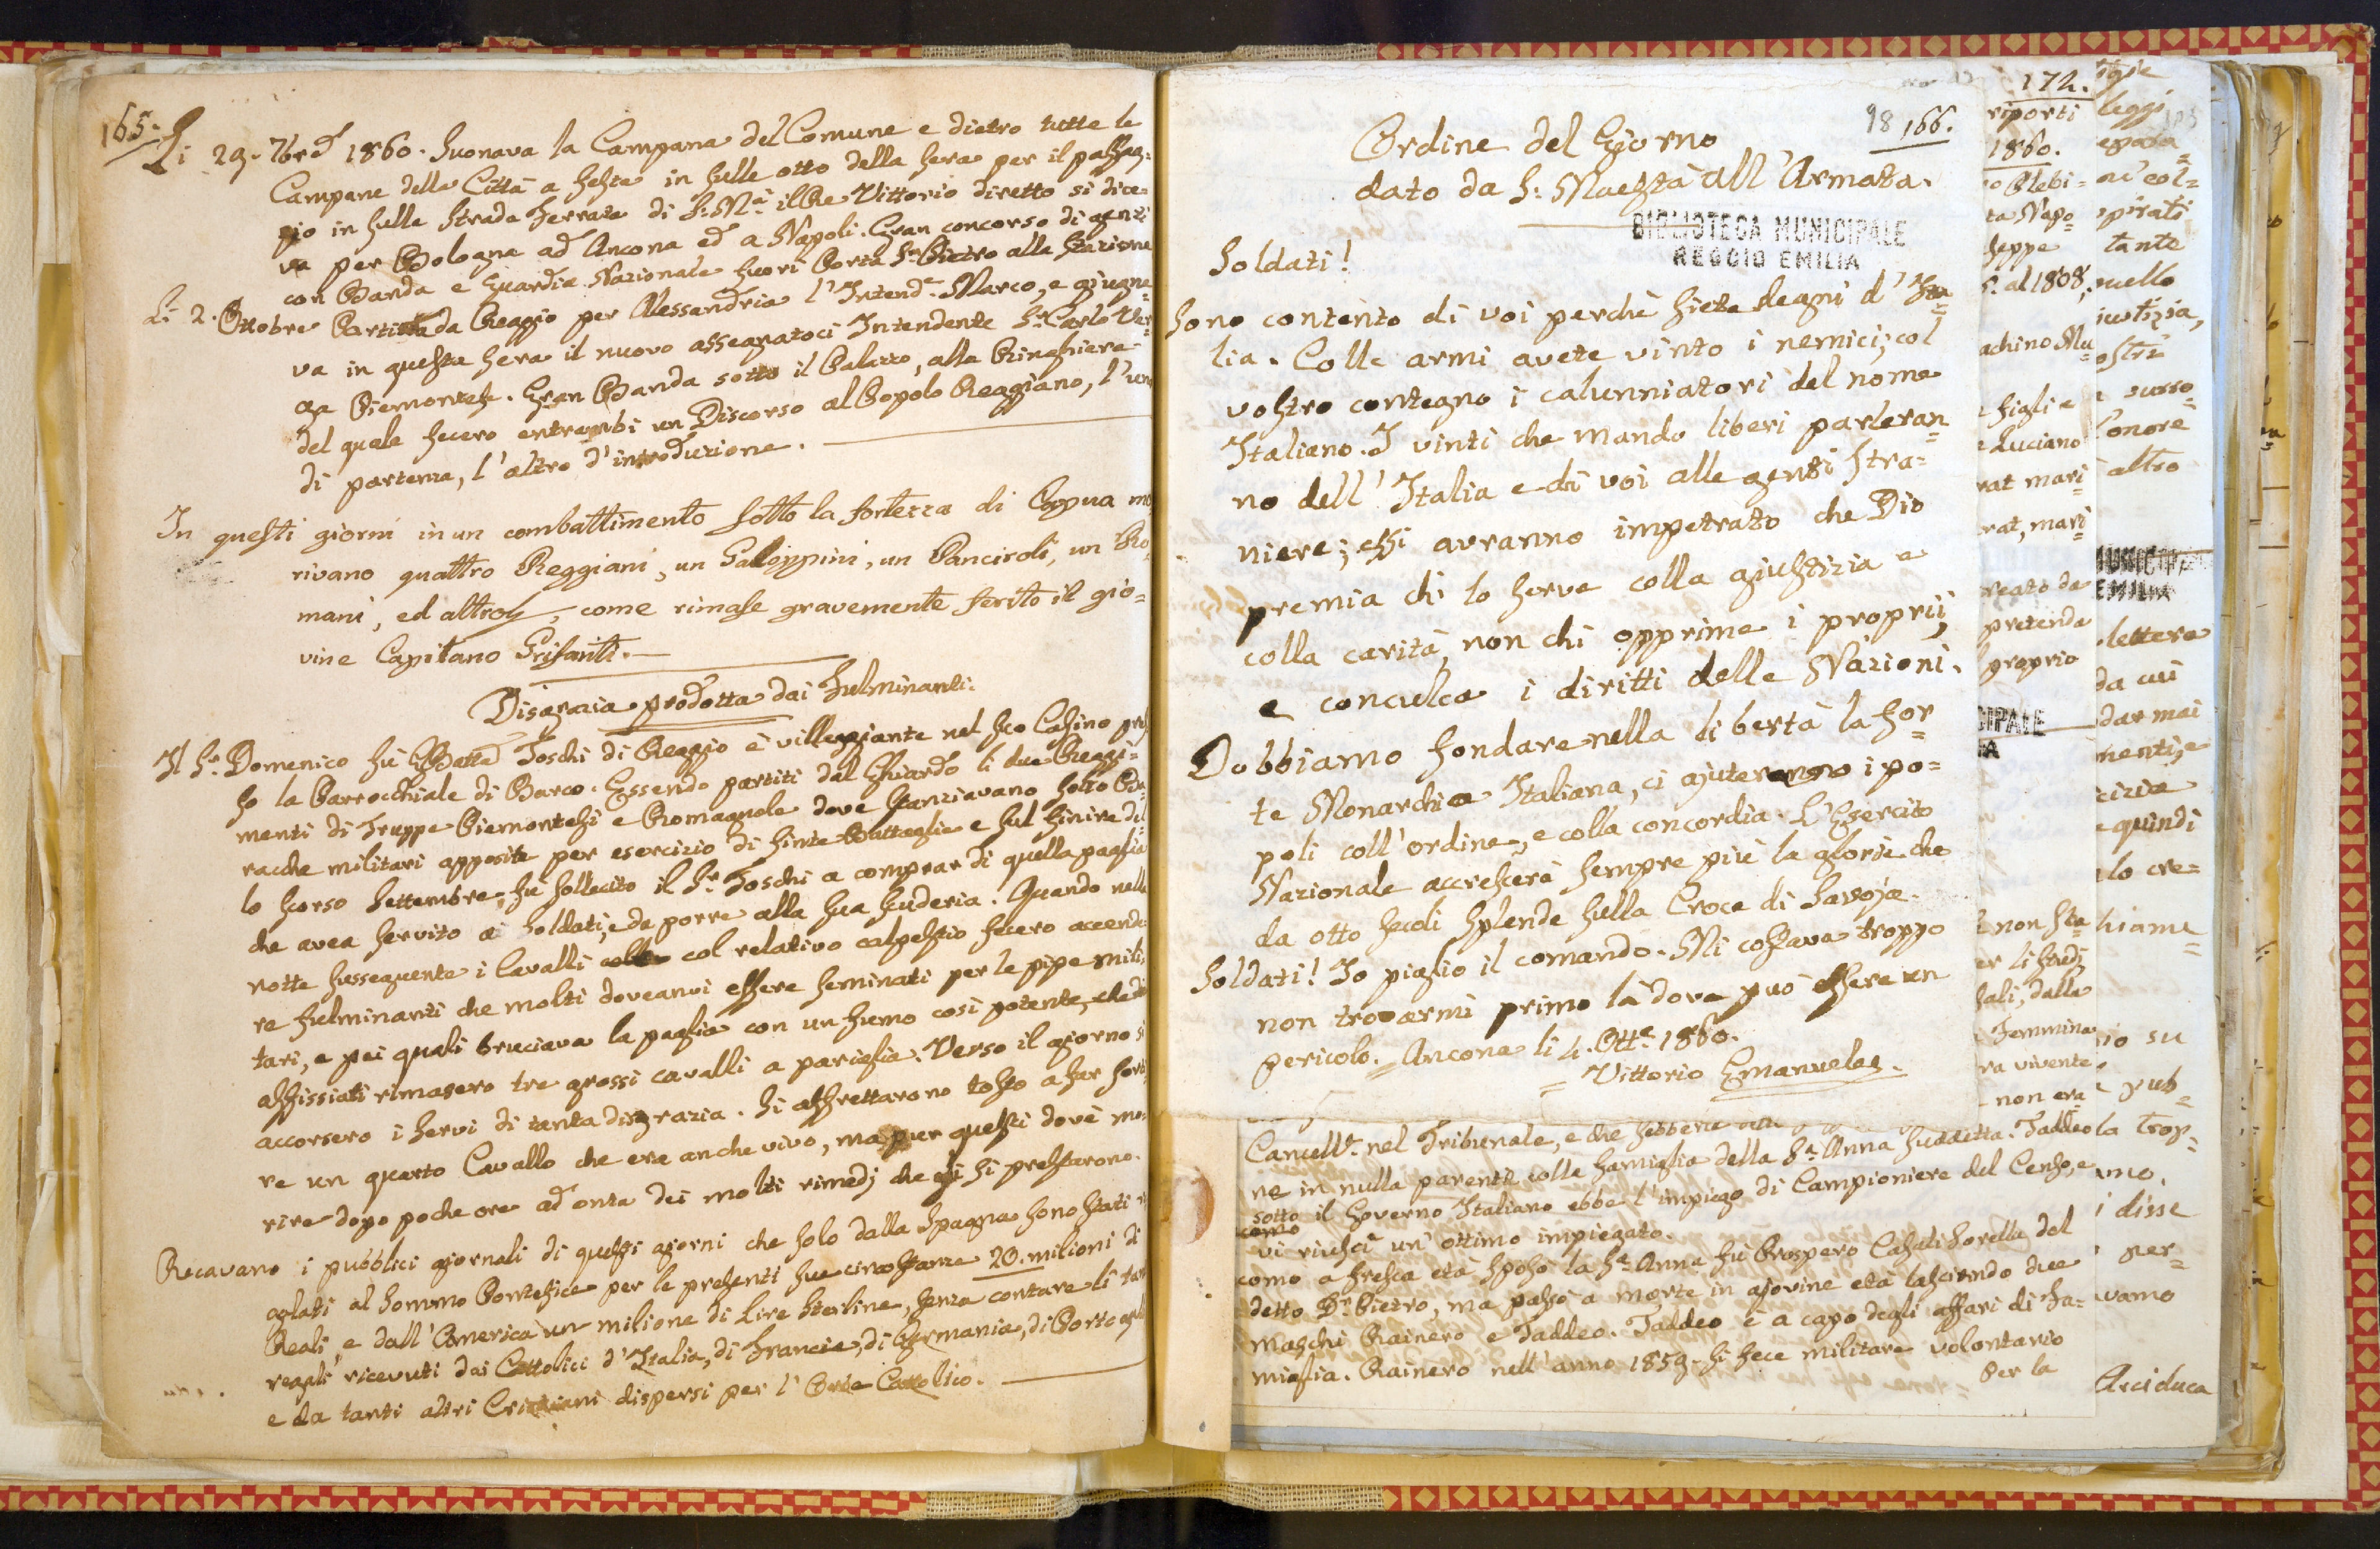 165.
Li 29. 7bre 1860. Suonava la Campana del Comune e dietro tutte le
Campane della Città a festa in sulle otto della sera per il passag-
gio in sulla Strada Ferrata di S: Mà. il Re Vittorio diretto si dice-
va per Bologna ad Ancona ed a Napoli. Gran concorso di genti
con Banda e Guardia Nazionale fuori Porta Sn Pietro alla Stazione
Li 2. Ottobre Partiva da Reggio per Alessandria l'Intend.e Marco, e giugne=
va in questa sera il nuovo assegnatoci Intendente Sr. Carlo Ver=
ga Piemontese. Gran Banda sotto il Palazzo, alla Ringhiera
del quale fecero entrambi un Discorso al Popolo Reggiano, l'uno
di partenza, l'altro d'introduzione.
In questi giorni in un combattimento sotto la fortezza di Capua mo
rivano quattro Reggiani, un Galoppini, un Panciroli, un Ro=
mani, ed altro, come rimase gravemente ferito il gio=
vine Capitano Grisanti.
Disgrazia prodotta dai Fulminanti.
Il Sr. Domenico fù GBatta Toschi di Reggio è villeggiante nel suo Casino pres
so la Parrocchiale di Barco. Essendo partiti dal Ghiardo li due Reggi=
menti di Truppe Piemontesi e Romagnole dove stanziavano sotto Ba=
racche militari apposite per esercizio di finte Battaglie e sul finire del
lo scorso Settembre, fu sollecito il Sr. Toschi a comprar di quella paglia
che avea servito ai soldati, e da porre alla sua scuderia. Quando nella
notte susseguente i Cavalli col relativo calpestio fecero accende
re fulminanti che molti doveanvi essere seminati per le pipe mili
tari, e pei quali bruciava la paglia con un fumo così potente, che di
assissiati rimasero tre grossi cavalli a pariglia. Verso il giorno si
accorsero i servi di tanta disgrazia. Si affrettarono tosto a far sorti
re un quarto Cavallo che era anche vivo, ma pur questi dovè mo=
rire dopo poche ore ad onta dei molti rimedj che gli si prestarono.
Recavano i pubblici giornali di questi giorni che solo dalla Spagna sono stati re
golati al Sommo Pontefice per le presenti sue circostanze 20. milioni di
Reali, e dall'America un milione di Lire Sterline, senza contare li tanti
regali ricevuti dai Cattolici d'Italia, di Francia, di Germania, di Portogallo
e da tanti altri Cristiani dispersi per l'Orbe Cattolico.
98 166.
Ordine del Giorno
dato da S: Maestà all'Armata.
BIBLIOTECA MUNICIPALE
REGGIO EMILIA
Soldati!
Sono contento di voi perchè siete degni d'Ita=
lia. Colle armi avete vinto i nemici; col
vostro contegno i calunniatori del nome
Italiano. I vinti che mando liberi parleran=
no dell'Italia e di voi alle genti stra=
niere; essi avranno impetrato che Dio
premia chi lo serve colla giustizia e
colla carità, non chi opprime i proprii,
e conculca i diritti delle Nazioni.
Dobbiamo fondare nella libertà la for=
te Monarchia Italiana, ci ajuteranno i po=
poli coll'ordine, e colla concordia. L'Esercito
Nazionale accrescerà sempre più la gloria che
da otto secoli splende sulla Croce di Savoja.
Soldati! Io piglio il comando. Mi costava troppo
non trovarmi primo là dove può essere un
pericolo. = Ancona li 4. Otte. 1860.
= Vittorio Emanuele.
Cancellre. nel Tribunale, e che sebbene
ne in nulla parente colla famiglia della Sa. Anna suddetta. Taddeo
sotto il Governo Italiano ebbe l'impiego di Campioniere del Censo, e
vi riuscì un'ottimo impiegato.
como
como a fresca età sposò la Sa. Anna fù Prospero Casali Sorella del
detto Dr. Pietro, ma passò a morte in giovine età lasciando due
maschi Rainero e Taddeo. Taddeo è a capo degli affari di fa=
miglia. Rainero nell'anno 1859. si fece militare volontario
Per la
172.
riporti
1860.
Plebi=
ta Napo=
seppe
al 1808.
achino Mu=
figli e
e Luciano
rat mari=
rat, mari=
reato da
pretende
proprio
CIPALE
non sta
er li studj
sali, dalla
Femmina
ra vivente
non era
leggi
col=
spirati
tante
quello
iustizia,
ostri
l'onore
altro
MUNICIPALE
EMILIA
lettera
da cui
dar mai
menti, e
e quindi
lo cre=
hiama=
io su
pub=
la trop=
amo,
i disse
per=
vamo
Arciduca